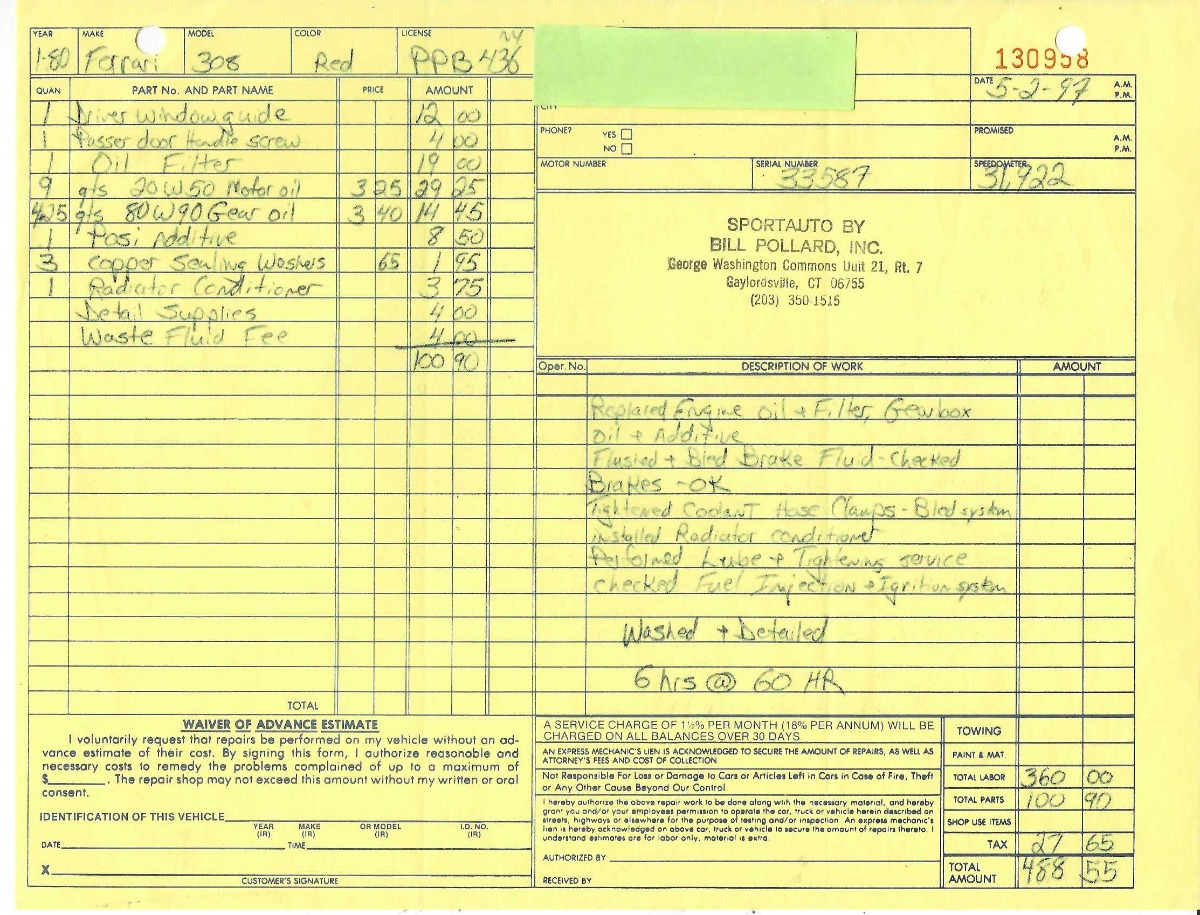 YEAR MAKE MODEL COLOR LICENSE NY
1-80 Ferrari 308 Red PPB 436
130958
DATE 5-2-97 A.M. P.M.
QUAN PART No. AND PART NAME PRICE AMOUNT
1 Driver window guide 12 00
1 Passer door Handle screw 4 00
1 Oil Filter 19 00
9 qts 20W50 Motor oil 3 25 29 25
4.25 qts 80W90 Gear oil 3 40 14 45
1 Posi Additive 8 50
3 Copper Sealing Washers 65 1 95
1 Radiator Conditioner 3 75
Detail Supplies 4 00
Waste Fluid Fee 4 00
100 90
TOTAL
CITY
PHONE? YES NO
PROMISED A.M. P.M.
MOTOR NUMBER SERIAL NUMBER SPEEDOMETER
33587 31,922
SPORTAUTO BY
BILL POLLARD, INC.
George Washington Commons Uuit 21, Rt. 7
Gaylordsville, CT 06755
(203) 350-1515
Oper. No. DESCRIPTION OF WORK AMOUNT
Replaced Engine oil + Filter, Gearbox
Oil + Additive
Flushed + Bled Brake Fluid - Checked
Brakes - OK
Tightened Coolant Hose Clamps - Bled system
installed Radiator conditioner
Performed Lube + Tightening service
checked Fuel Injection + Ignition system
Washed + Detailed
6 hrs @ 60 HR
WAIVER OF ADVANCE ESTIMATE
I voluntarily request that repairs be performed on my vehicle without an ad-
vance estimate of their cost. By signing this form, I authorize reasonable and
necessary costs to remedy the problems complained of up to a maximum of
$________. The repair shop may not exceed this amount without my written or oral
consent.
IDENTIFICATION OF THIS VEHICLE
YEAR (IR) MAKE (IR) OR MODEL (IR) I.D. NO. (IR)
DATE TIME
X
CUSTOMER'S SIGNATURE
A SERVICE CHARGE OF 1½% PER MONTH (18% PER ANNUM) WILL BE
CHARGED ON ALL BALANCES OVER 30 DAYS
AN EXPRESS MECHANIC'S LIEN IS ACKNOWLEDGED TO SECURE THE AMOUNT OF REPAIRS, AS WELL AS
ATTORNEY'S FEES AND COST OF COLLECTION.
Not Responsible For Loss or Damage to Cars or Articles Left in Cars in Case of Fire, Theft
or Any Other Cause Beyond Our Control
I hereby authorize the above repair work to be done along with the necessary material, and hereby
grant you and/or your employees permission to operate the car, truck or vehicle herein described on
streets, highways or elsewhere for the purpose of testing and/or inspection. An express mechanic's
lien is hereby acknowledged on above car, truck or vehicle to secure the amount of repairs thereto. I
understand estimates are for labor only, material is extra.
AUTHORIZED BY
RECEIVED BY
TOWING
PAINT & MAT.
TOTAL LABOR 360 00
TOTAL PARTS 100 90
SHOP USE ITEMS
TAX 27 65
TOTAL AMOUNT 488 55